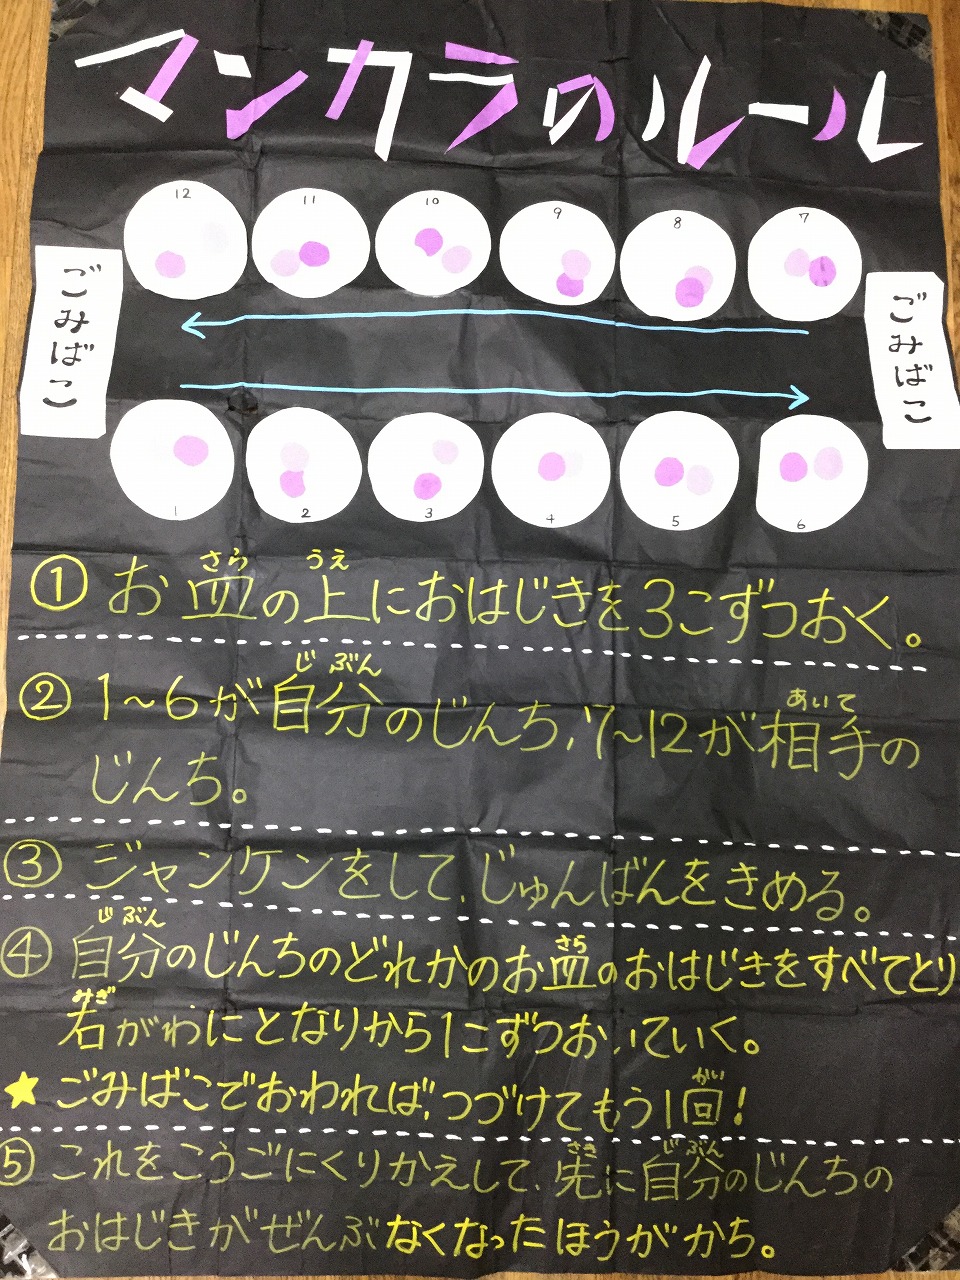 マンカラのルール
12 11 10 9 8 7
ごみばこ
ごみばこ
1 2 3 4 5 6
さら うえ
① お皿の上におはじきを3こずつおく。
じ ぶん あいて
② 1~6が自分のじんち,7~12が相手の
じんち。
③ ジャンケンをして、じゅんばんをきめる。
じ ぶん さら
④ 自分のじんちのどれかのお皿のおはじきをすべてとり
みぎ
右がわにとなりから1こずつおいていく。
かい
★ ごみばこでおわれば、つづけてもう1回!
さき じ ぶん
⑤ これをこうごにくりかえして、先に自分のじんちの
おはじきがぜんぶなくなったほうがかち。